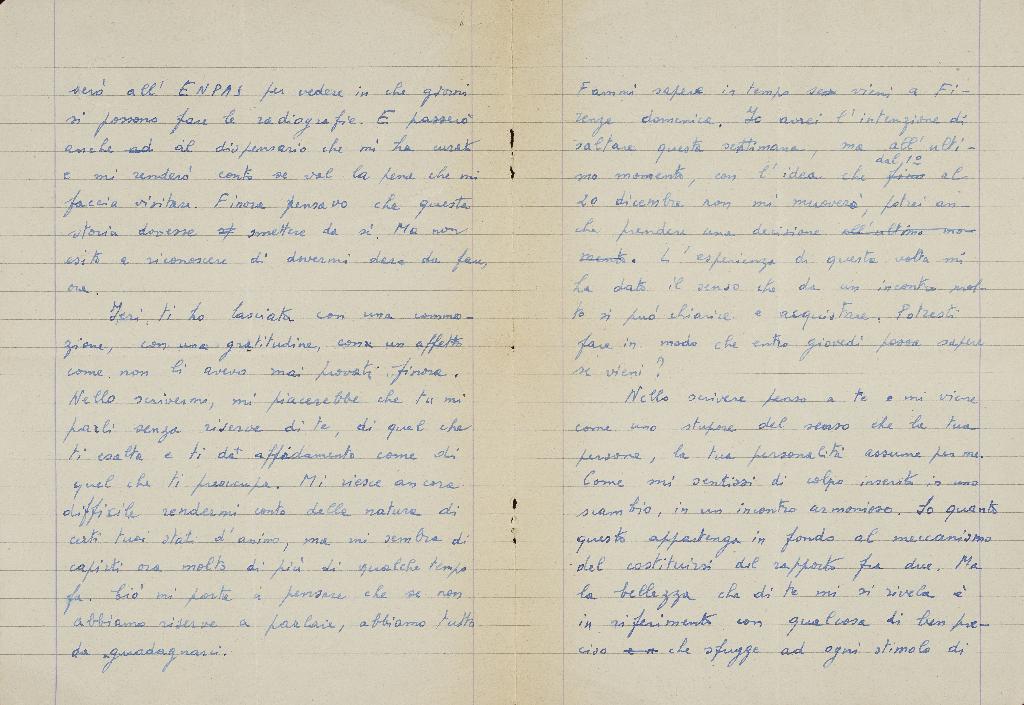 rerò all' ENPAS per vedere in che giorni
si possono fare le radiografie. E passerò
anche ad al dispensario che mi ha curato
e mi renderò conto se val la pena che mi
faccia visitare. Finora pensavo che questa
storia dovesse smettere da sé. Ma non
esito a riconoscere di dovermi dare da fare,
ora.
Ieri ti ho lasciata con una commo-
zione, con una gratitudine, con un affetto
come non li avevo mai provati finora.
Nello scrivermi, mi piacerebbe che tu mi
parli senza riserve di te, di quel che
ti esalta e ti dà affidamento come di
quel che ti preoccupa. Mi riesce ancora
difficile rendermi conto della natura di
certi tuoi stati d'animo, ma mi sembra di
capirti ora molto di più di qualche tempo
fa. Ciò mi porta a pensare che se non
abbiamo riserve a parlare, abbiamo tutto
da guadagnarci.
Fammi sapere in tempo se vieni a Fi-
renze domenica. Io avrei l'intenzione di
saltare questa settimana, ma all'ulti-
mo momento, con l'idea che fino dal 1º al
20 dicembre non mi muoverò, potrei an-
che prendere una decisione all'ultimo mo-
mento. L'esperienza di questa volta mi
ha dato il senso che da un incontro mol-
to si può chiarire e acquistare. Potresti
fare in modo che entro giovedì possa sapere
se vieni?
Nello scrivere penso a te e mi viene
come uno stupore del senso che la tua
persona, la tua personalità assume per me.
Come mi sentissi di colpo inserito in uno
scambio, in un incontro armonioso. So quanto
questo appartenga in fondo al meccanismo
del costituirsi del rapporto fra due. Ma
la bellezza che di te mi si rivela è
in riferimento con qualcosa di ben pre-
ciso che sfugge ad ogni stimolo di